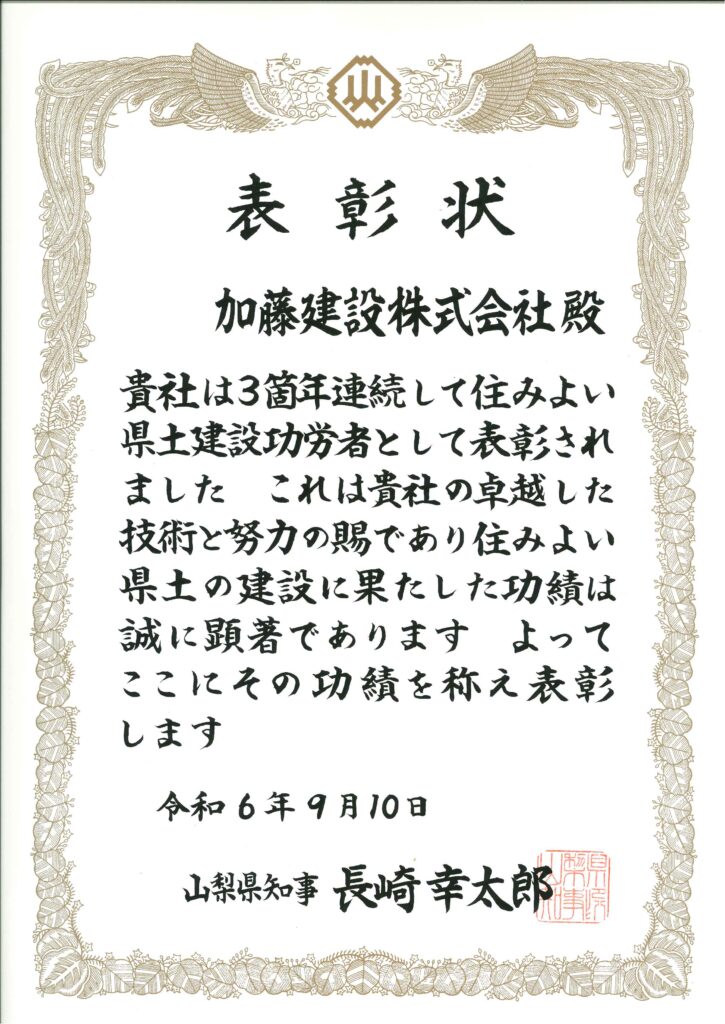 表彰状
加藤建設株式会社殿
貴社は3箇年連続して住みよい
県土建設功労者として表彰され
ました　これは貴社の卓越した
技術と努力の賜であり住みよい
県土の建設に果たした功績は
誠に顕著であります　よって
ここにその功績を称え表彰
します
令和6年9月10日
山梨県知事 長崎幸太郎